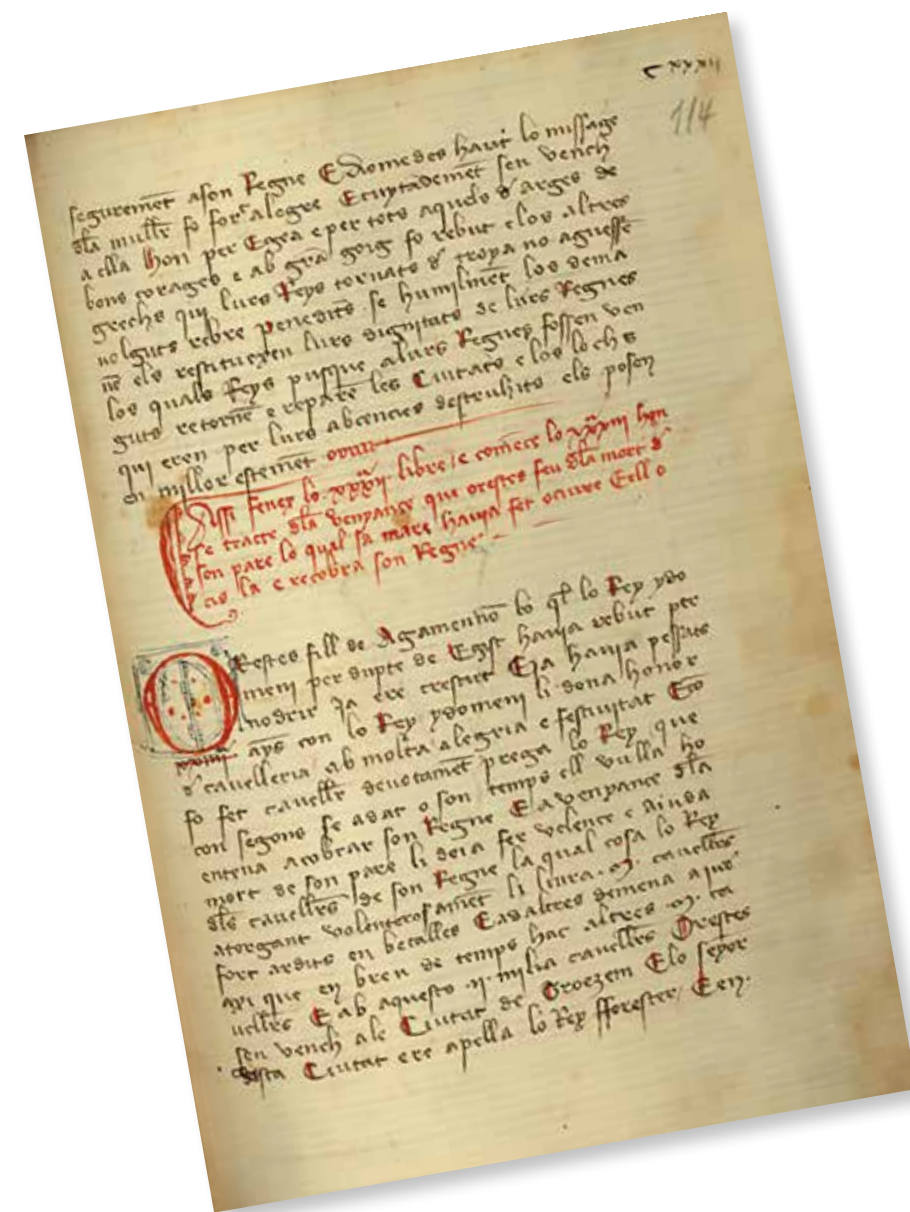 CXXXII
114
seguremēt a son Regne E diomedes haut lo missatge
dla muller fo fort alegre E cuytademēt sen vench
a ella Hon per Egea e per tots aquels d arges de
bons coratges e ab grā goig fo rebut e los altres
grechs qui lurs Reys tornats d troya no aguesſē
uolguts rebre penedits se humilmēt los dema
nē els restituexen lurs dignitats de lurs Regnes
los quals Reys pusque a lurs Regnes fossen ven
guts retornē e reparē les Ciutats e los lochs
qui eren per lurs abcencies destruhits els posen
en millor estemēt
Assi fenex lo xxxij libre e comēce lo xxxiij hon
se tracte dla venyança que orestes feu dla mort d
son pare lo qual sa mare hauia fet ociure E ell o
cis la e recobra son Regne
ORestes fill de Agamenno lo ql lo Rey ydo
meni per dupte de Egist hauia rebut per
nodrir Ja ere crescut E ja hauia pessats
xxiiij ayns con lo Rey ydomeni li dona honor
d caualleria ab molta alegria e festiuitat E co
fo fet cauallr deuotamēt prega lo Rey que
con segons se adat o son temps ell vulla ho
entena acobrar son Regne E a venyança dla
mort de son pare li deia fer valença e aiuda
dls cauallrs de son Regne la qual cosa lo Rey
atorgant volenterosamēt li liura .M. cauallrs
fort ardits en batalles E adaltres demena aiud
axi que en breu de temps hac altres .M. ca
uallrs E ab aquests .ij. milia cauallrs Orestes
sen vench a la Ciutat de Troezem E lo senyor
dsta Ciutat ere apellat lo Rey fforester E en